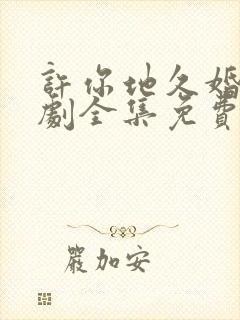 許你地久婚
劇全集免費
嚴加安